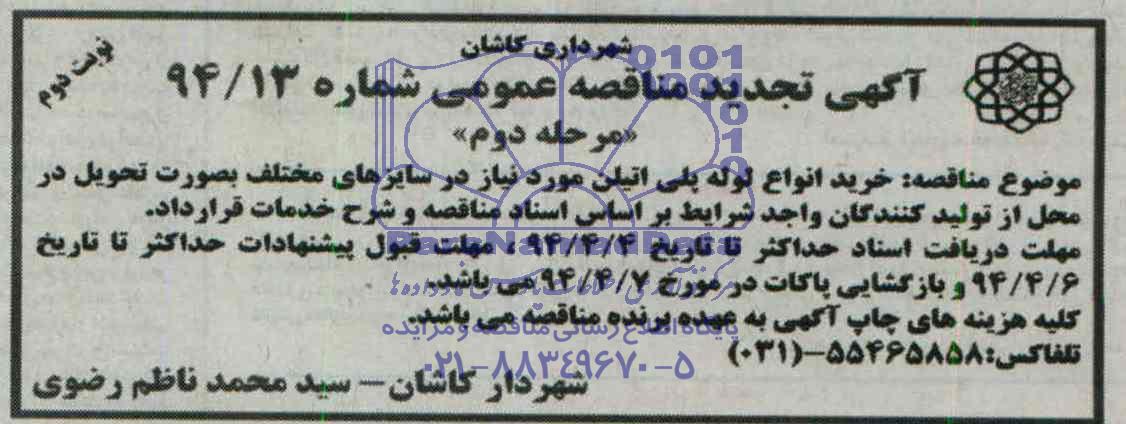 شهرداری کاشان
نوبت دوم
آگهی تجدید مناقصه عمومی شماره ۹۴/۱۳
«مرحله دوم»
موضوع مناقصه: خرید انواع لوله پلی اتیلن مورد نیاز در سایزهای مختلف بصورت تحویل در
محل از تولید کنندگان واجد شرایط بر اساس اسناد مناقصه و شرح خدمات قرارداد.
مهلت دریافت اسناد حداکثر تا تاریخ ۹۴/۴/۴ ، مهلت قبول پیشنهادات حداکثر تا تاریخ
۹۴/۴/۶ و بازگشایی پاکات در مورخ ۹۴/۴/۷ می باشد.
کلیه هزینه های چاپ آگهی به عهده برنده مناقصه می باشد.
تلفاکس:۵۵۴۶۵۸۵۸-(۰۳۱)
شهردار کاشان – سید محمد ناظم رضوی
پایگاه اطلاع رسانی مناقصه و مزایده
۰۲۱-۸۸۳۴۹۶۷۰-۵